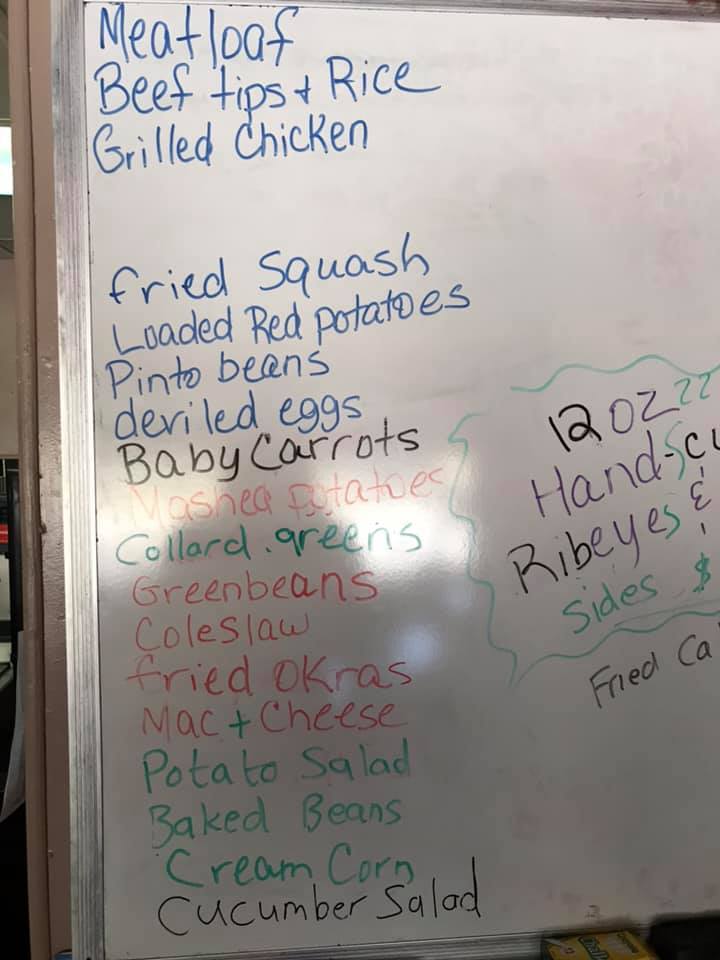 Meatloaf
Beef tips + Rice
Grilled Chicken
fried Squash
Loaded Red potatoes
Pinto beans
deviled eggs
Baby Carrots
Mashed potatoes
Collard.greens
Greenbeans
Coleslaw
fried OKras
Mac + Cheese
Potato Salad
Baked Beans
Cream Corn
Cucumber Salad
12 OZ
Hand-
Ribeyes &
Sides $
Fried